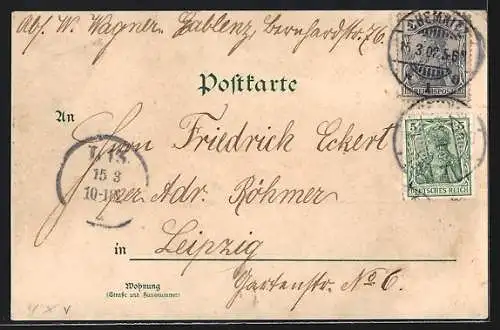 Abs. W. Wagner. Gablenz, Bernhardstr. 76.
CHEMNITZ
15.3.02. 5-6N
REICHSPOST
Postkarte
An
Herrn Friedrich Eckert
per Adr. Röhmer
in Leipzig
Gartenstr. No 6.
T. 13.
15 3
10-11
5 5
DEUTSCHES REICH
Wohnung
(Straße und Hausnummer)